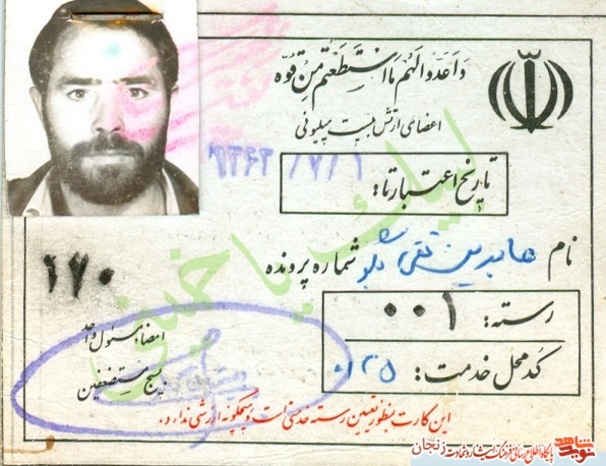 وَاَعِدّوالَهُم مااسْتَطَعْتُم مِنْ قُوَّه
اعضای ارتش بیست میلیونی
تاریخ اعتبار تا:
۱۳۶۳/۷/۱
لبیک یا خمینی
نام
شماره پرونده
۱۷۰
رسته: ۰۰۱
کد محل خدمت: ۰۲۵
امضاء مسئول واحد
بسیج مستضعفین
این کارت بمنظور تعیین رسته خدمتی است و هیچگونه ارزشی ندارد.
نوید شاهد
پایگاه اطلاع رسانی فرهنگ ایثار و شهادت زنجان